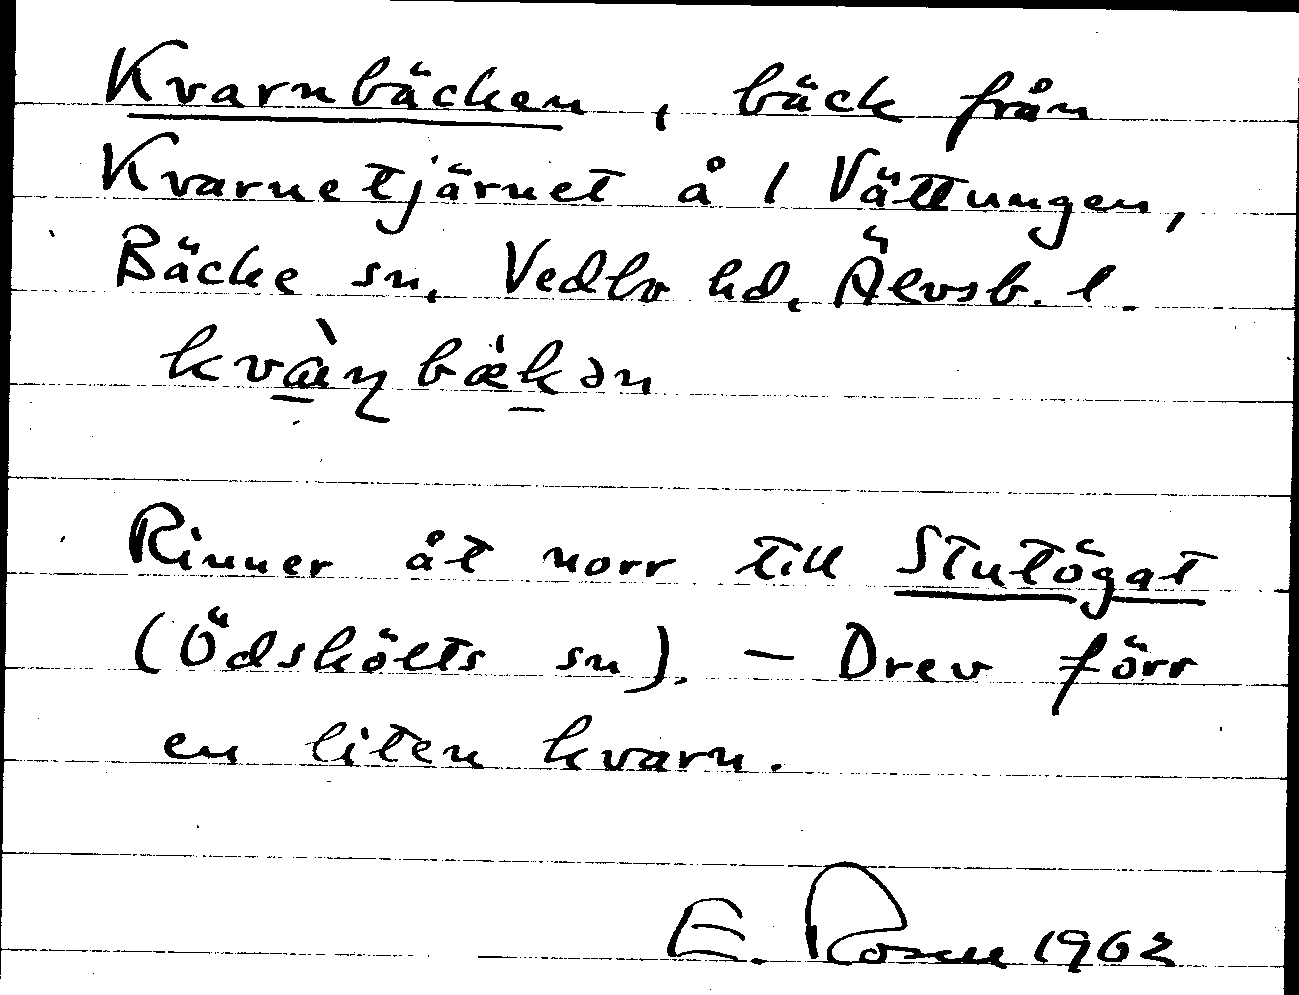 Kvarnbäcken, bäck från
Kvarnetjärnet å 1 Vättungen,
Bäcke sn, Vedbo hd, Älvsb. l.
Rinner åt norr till Stutögat
(Ödskölts sn). – Drev förr
en liten kvarn.
E. Rosen 1962